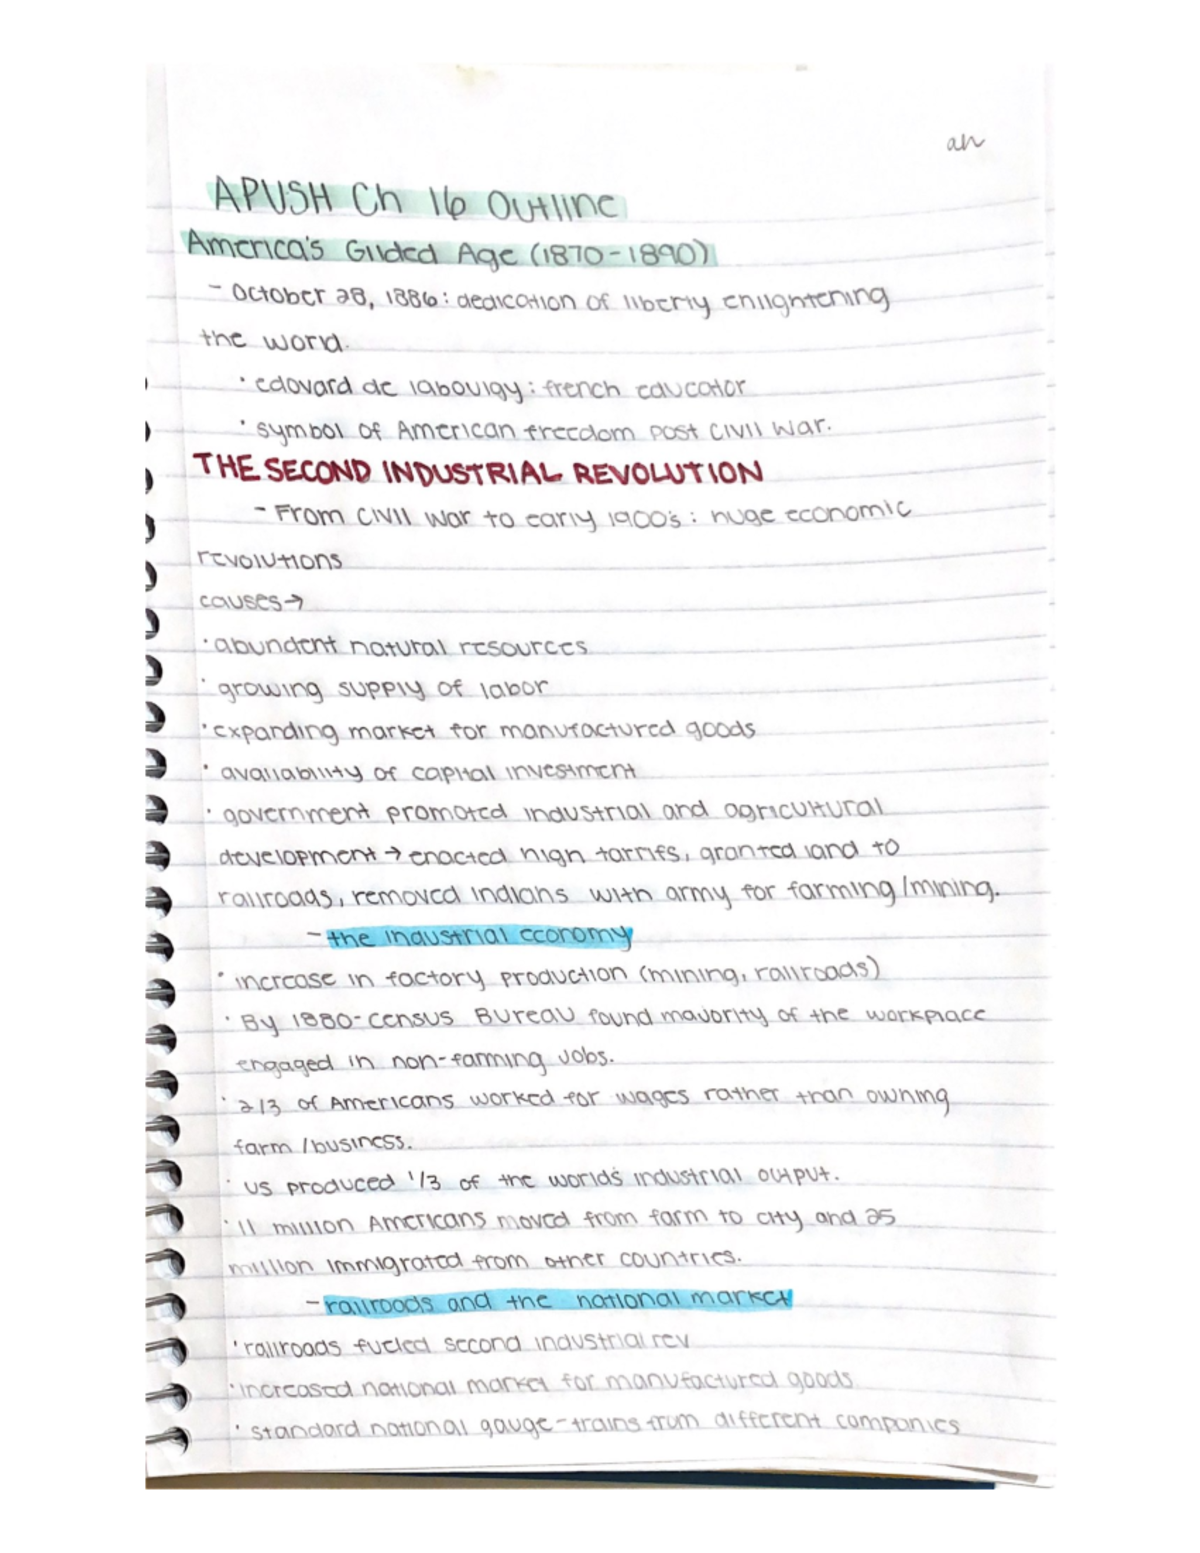 an
APUSH Ch 16 Outline
America's Gilded Age (1870-1890)
- October 28, 1886: dedication of liberty enlightening
the world.
• edovard de labouigy: french educator
• symbol of American freedom post civil war.
THE SECOND INDUSTRIAL REVOLUTION
- From civil war to early 1900's: huge economic
revolutions
causes→
• abundent natural resources
• growing supply of labor
• expanding market for manufactured goods
• availability of capital investment
• government promoted industrial and agricultural
development → enacted high tarrifs, granted land to
railroads, removed indians with army for farming/mining.
- the industrial economy
• increase in factory production (mining, railroads)
• By 1880-census Bureau found majority of the workplace
engaged in non-farming jobs.
• 2/3 of Americans worked for wages rather than owning
farm/business.
• US produced 1/3 of the world's industrial output.
• 11 million Americans moved from farm to city and 25
million immigrated from other countries.
- railroads and the national market
• railroads fueled second industrial rev
• increased national market for manufactured goods
• standard national gauge-trains from different companies